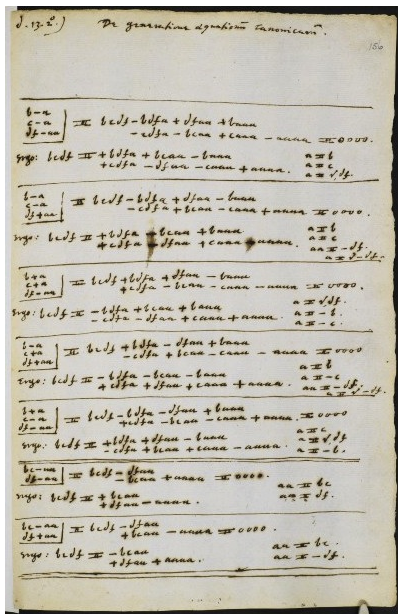 d.13.2°) De generatione æquationũ canonicarũ.
156
b-a
c-a = bcdf - bdfa + dfaa + baaa
df-aa - cdfa - bcaa + caaa - aaaa = 0000.
Ergo: bcdf = + bdfa + bcaa - baaa a = b
+ cdfa - dfaa - caaa + aaaa. a = c
a = √df.
b-a
c-a = bcdf - bdfa + dfaa - baaa
df+aa - cdfa + bcaa - caaa + aaaa = 0000.
Ergo: bcdf = + bdfa - bcaa + baaa a = b
+ cdfa - dfaa + caaa - aaaa. a = c
aa = -df.
a = √-df.
b+a
c+a = bcdf + bdfa + dfaa - baaa
df-aa + cdfa - bcaa - caaa - aaaa = 0000.
Ergo: bcdf = - bdfa + bcaa + baaa a = √df.
- cdfa - dfaa + caaa + aaaa. a = -b.
a = -c.
b-a
c+a = bcdf + bdfa - dfaa + baaa
df+aa - cdfa + bcaa - caaa - aaaa = 0000
a = b
Ergo: bcdf = - bdfa - bcaa - baaa a = -c
+ cdfa + dfaa + caaa + aaaa. aa = -df.
a = √-df.
b+a
c-a = bcdf - bdfa - dfaa + baaa
df-aa + cdfa - bcaa - caaa + aaaa. = 0000
a = c
Ergo: bcdf = + bdfa + dfaa - baaa a = √df
- cdfa + bcaa + caaa - aaaa. a = -b.
bc-aa = bcdf - dfaa
df-aa - bcaa + aaaa = 0000.
Ergo: bcdf = + bcaa aa = bc
+ dfaa - aaaa. aa = df.
bc-aa = bcdf - dfaa
df+aa + bcaa - aaaa = 0000.
Ergo: bcdf = - bcaa aa = bc.
+ dfaa + aaaa. aa = -df.